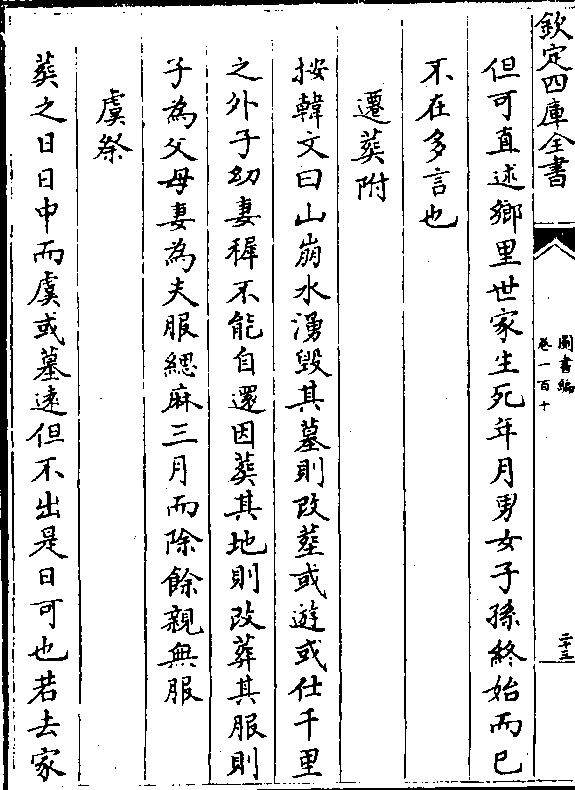 欽定四庫全書
圖書編
卷一百十
二十三
但可直述鄉里世家生死年月男女子孫終始而已
不在多言也
遷葬附
按韓文曰山崩水湧毀其墓則改塟或遊或仕千里
之外子幼妻稺不能自還因葬其地則改葬其服則
子為父母妻為夫服緦麻三月而除餘親無服
虞祭
葬之日日中而虞或墓遠但不出是日可也若去家